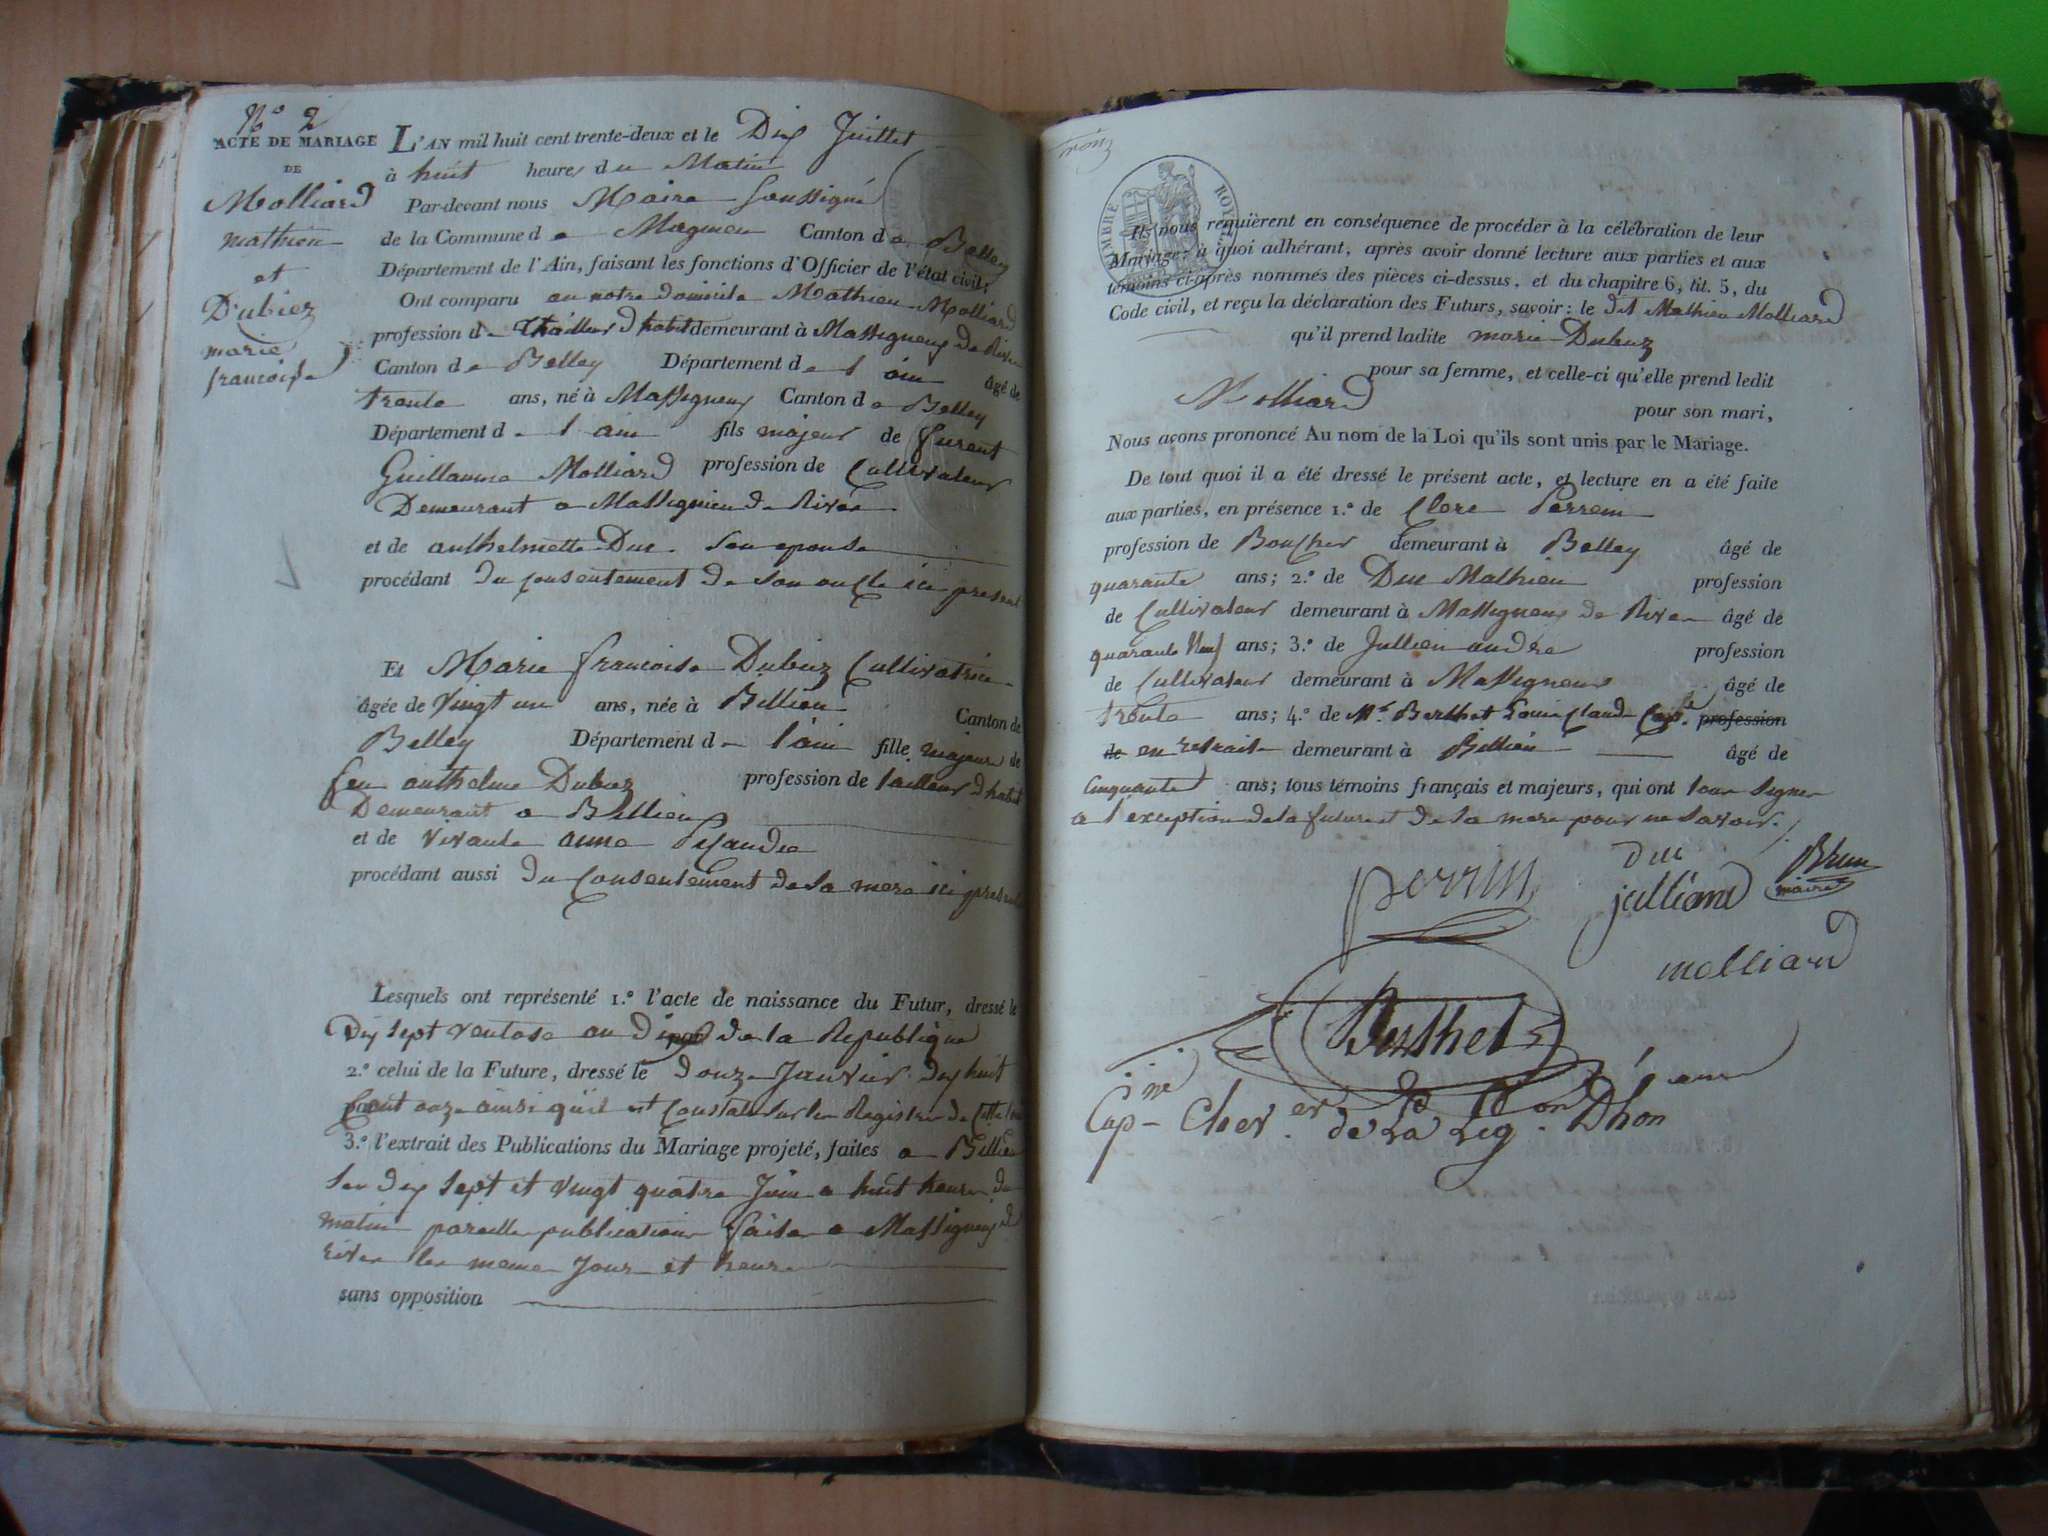 N.o 2
ACTE DE MARIAGE
DE
Molliard
mathieu
et
Dubiez
marie
francoise
L'AN mil huit cent trente-deux et le Dix Juillet
à huit heures du Matin
Par-devant nous Maire Soussigné
de la Commune de Magnieu Canton de Belley
Département de l'Ain, faisant les fonctions d'Officier de l'état civil;
Ont comparu en notre domicile Mathieu Molliard
profession de thailleur dhabit demeurant à Massigneux de Rive
Canton de Belley Département de l ain âgé de
trente ans, né à Massigneux Canton de Belley
Département de l ain fils majeur de
Guillaume Molliard profession de Cultivateur
Demeurant a Massignieu de Rive
et de anthelmette Duc son epouse
procédant du Consentement de son oncle ici present
Et Marie francoise Dubiez Cultivatrice
âgée de vingt un ans, née à Billieu Canton de
Belley Département de l'ain fille majeure de
feu anthelme Dubiez profession de tailleur dhabit
Demeurant a Billieu
et de vivante anne
procédant aussi du Consentement de sa mere ici presente
Lesquels ont représenté 1.º l'acte de naissance du Futur, dressé le
Dix sept ventose an dix de la Republique
2.º celui de la Future, dressé le douze Janvier dix huit
cent onze ainsi quil est Constaté sur les Registres de Cette
3.º l'extrait des Publications du Mariage projeté, faites a Billieu
les dix sept et vingt quatre Juin a huit heures du
matin pareilles publications faites a Massigneux de
rive les meme Jour et heure
sans opposition
TIMBRE ROYAL
Ils nous requièrent en conséquence de procéder à la célébration de leur
Mariage; à quoi adhérant, après avoir donné lecture aux parties et aux
témoins ci-après nommés des pièces ci-dessus, et du chapitre 6, tit. 5, du
Code civil, et reçu la déclaration des Futurs, savoir: le dit Mathieu Molliard
qu'il prend ladite marie Dubiez
pour sa femme, et celle-ci qu'elle prend ledit
Molliard pour son mari,
Nous avons prononcé Au nom de la Loi qu'ils sont unis par le Mariage.
De tout quoi il a été dressé le présent acte, et lecture en a été faite
aux parties, en présence 1.º de Clere Perrein
profession de Boucher demeurant à Belley âgé de
quarante ans; 2.º de Duc Mathieu profession
de Cultivateur demeurant à Massigneux de Rive âgé de
quarante Neuf ans; 3.º de Jullien andré profession
de Cultivateur demeurant à Massigneux âgé de
trente ans; 4.º de Mr Berthet Louis Claude Cap.e profession
de en retraite demeurant à Billieu âgé de
Cinquante ans; tous témoins français et majeurs, qui ont tous signer
a l'exception de la future et de sa mere pour ne savoir.
perrin
duc
julliand
Brun
maire
molliard
Berthet
Cap.ine Chev.er de La Leg.on Dhon